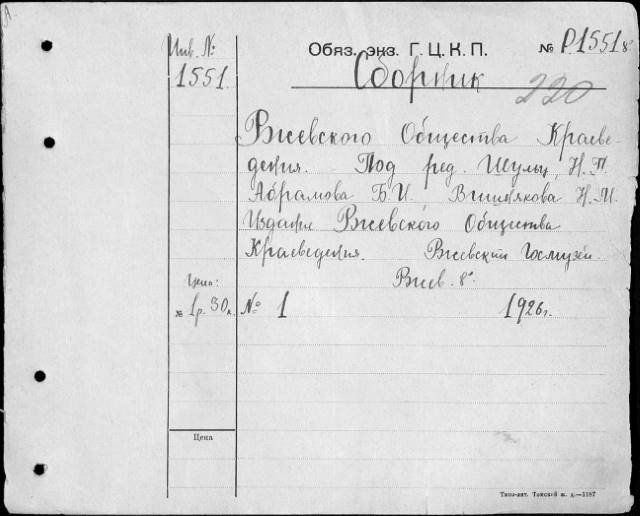 Инв. №
1551
Обяз. экз. Г. Ц. К. П.
№ Р1551 8°
Сборник
220
Ржевского Общества Краеве-
дения. Под ред. Шульц, Н. П.
Абрамова Б. И. Вишнякова Н. М.
Издание Ржевского Общества
Краеведения. Ржевский Госмузей.
Ржев. 8°.
Цена:
№ 1р. 30к.
№ 1
1926г.
Цена
Типо-лит. Томской ж. д.—1187